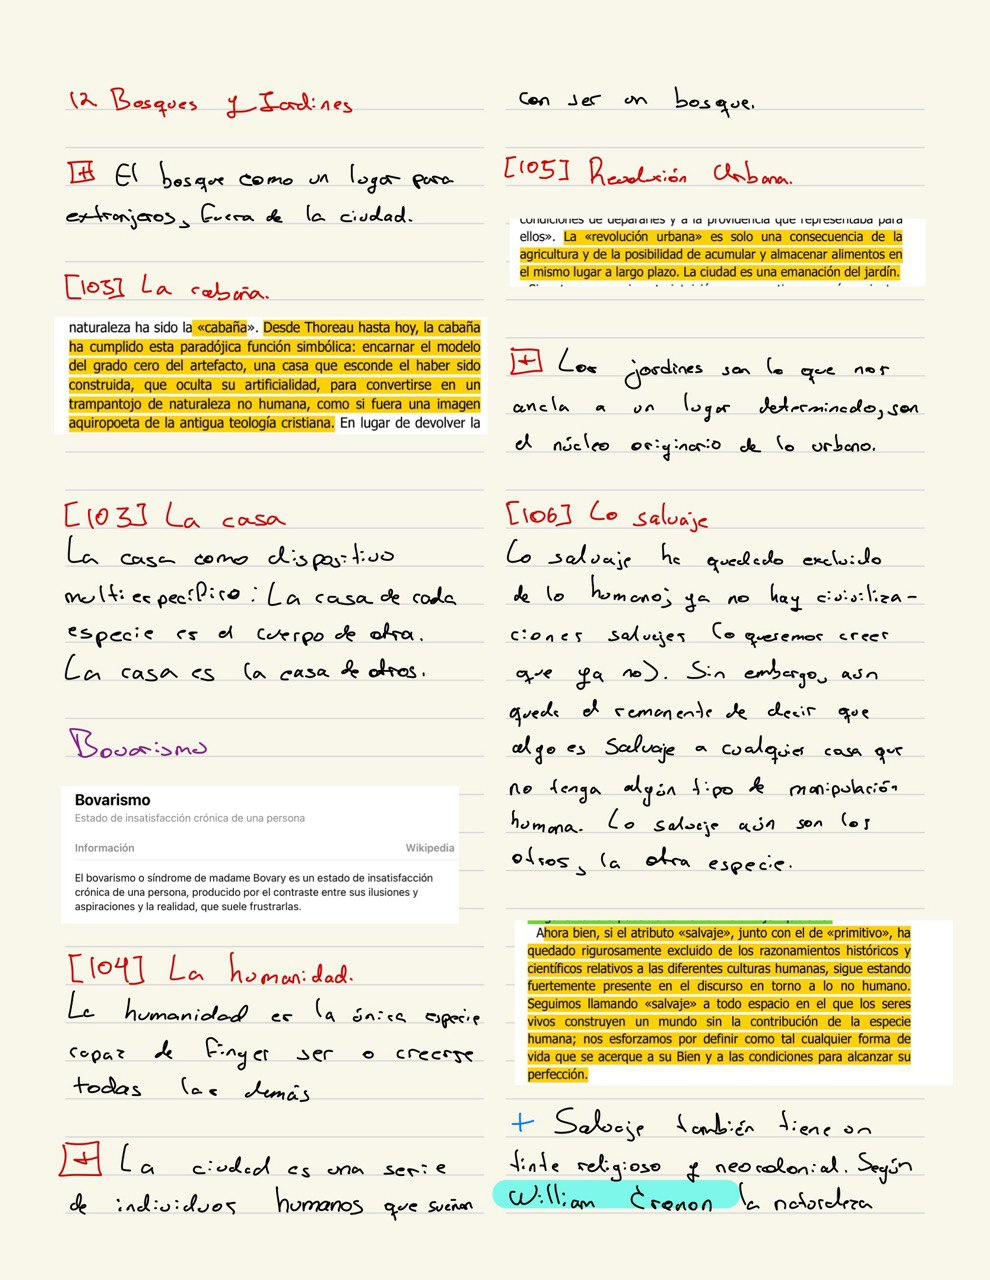 12. Bosques y Jardines
[+] El bosque como un lugar para
extranjeros, fuera de la ciudad.
[103] La cabaña.
naturaleza ha sido la «cabaña». Desde Thoreau hasta hoy, la cabaña
ha cumplido esta paradójica función simbólica: encarnar el modelo
del grado cero del artefacto, una casa que esconde el haber sido
construida, que oculta su artificialidad, para convertirse en un
trampantojo de naturaleza no humana, como si fuera una imagen
aquiropoeta de la antigua teología cristiana. En lugar de devolver la
[103] La casa
La casa como dispositivo
multiespecífico: La casa de cada
especie es el cuerpo de otra.
La casa es la casa de otros.
Bovarismo
Bovarismo
Estado de insatisfacción crónica de una persona
Información Wikipedia
El bovarismo o síndrome de madame Bovary es un estado de insatisfacción
crónica de una persona, producido por el contraste entre sus ilusiones y
aspiraciones y la realidad, que suele frustrarlas.
[104] La humanidad.
La humanidad es la única especie
capaz de finger ser o creerse
todas las demás
[+] La ciudad es una serie
de individuos humanos que sueñan
con ser un bosque.
[105] Revolución Urbana.
condiciones de depararles y a la providencia que representaba para
ellos». La «revolución urbana» es solo una consecuencia de la
agricultura y de la posibilidad de acumular y almacenar alimentos en
el mismo lugar a largo plazo. La ciudad es una emanación del jardín.
[+] Los jardines son lo que nos
ancla a un lugar determinado, son
el núcleo originario de lo urbano.
[106] Lo salvaje
Lo salvaje ha quedado excluido
de lo humano; ya no hay civiliza-
ciones salvajes (o queremos creer
que ya no). Sin embargo, aún
queda el remanente de decir que
algo es salvaje a cualquier cosa que
no tenga algún tipo de manipulación
humana. Lo salvaje aún son los
otros, la otra especie.
Ahora bien, si el atributo «salvaje», junto con el de «primitivo», ha
quedado rigurosamente excluido de los razonamientos históricos y
científicos relativos a las diferentes culturas humanas, sigue estando
fuertemente presente en el discurso en torno a lo no humano.
Seguimos llamando «salvaje» a todo espacio en el que los seres
vivos construyen un mundo sin la contribución de la especie
humana; nos esforzamos por definir como tal cualquier forma de
vida que se acerque a su Bien y a las condiciones para alcanzar su
perfección.
+ Salvaje también tiene un
tinte religioso y neocolonial. Según
William Cronon la naturaleza